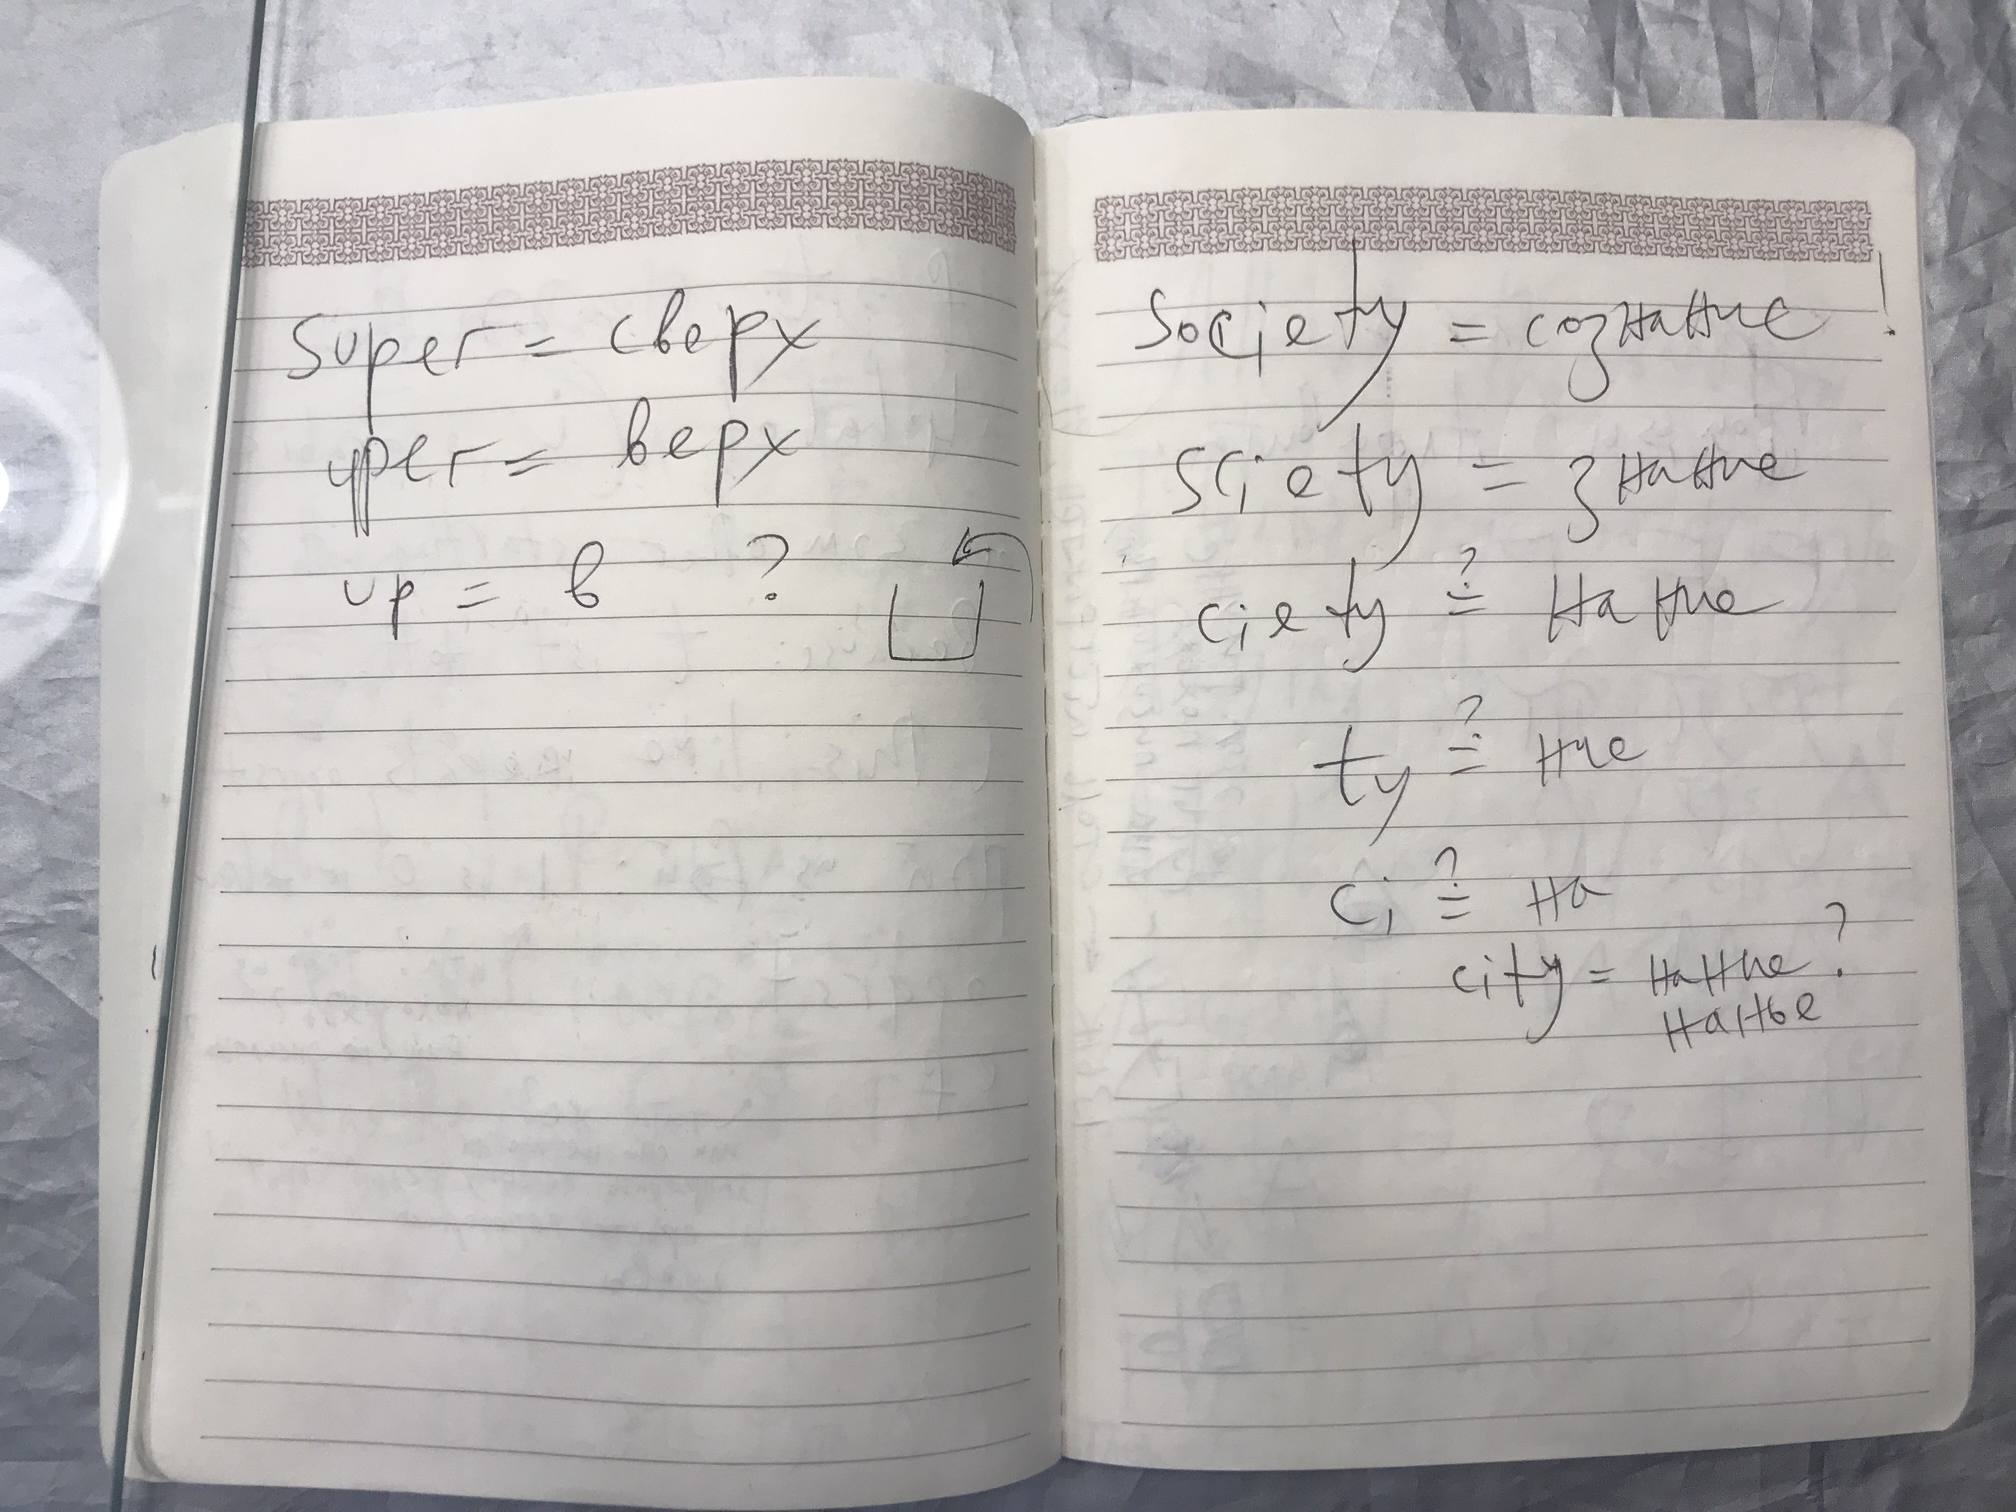 super = сверх
upper = верх
up = в ?
society = сознание!
sciety = знание
ciety ≟ нание
ty ≟ ние
ci ≟ на
city = нание?
нанье